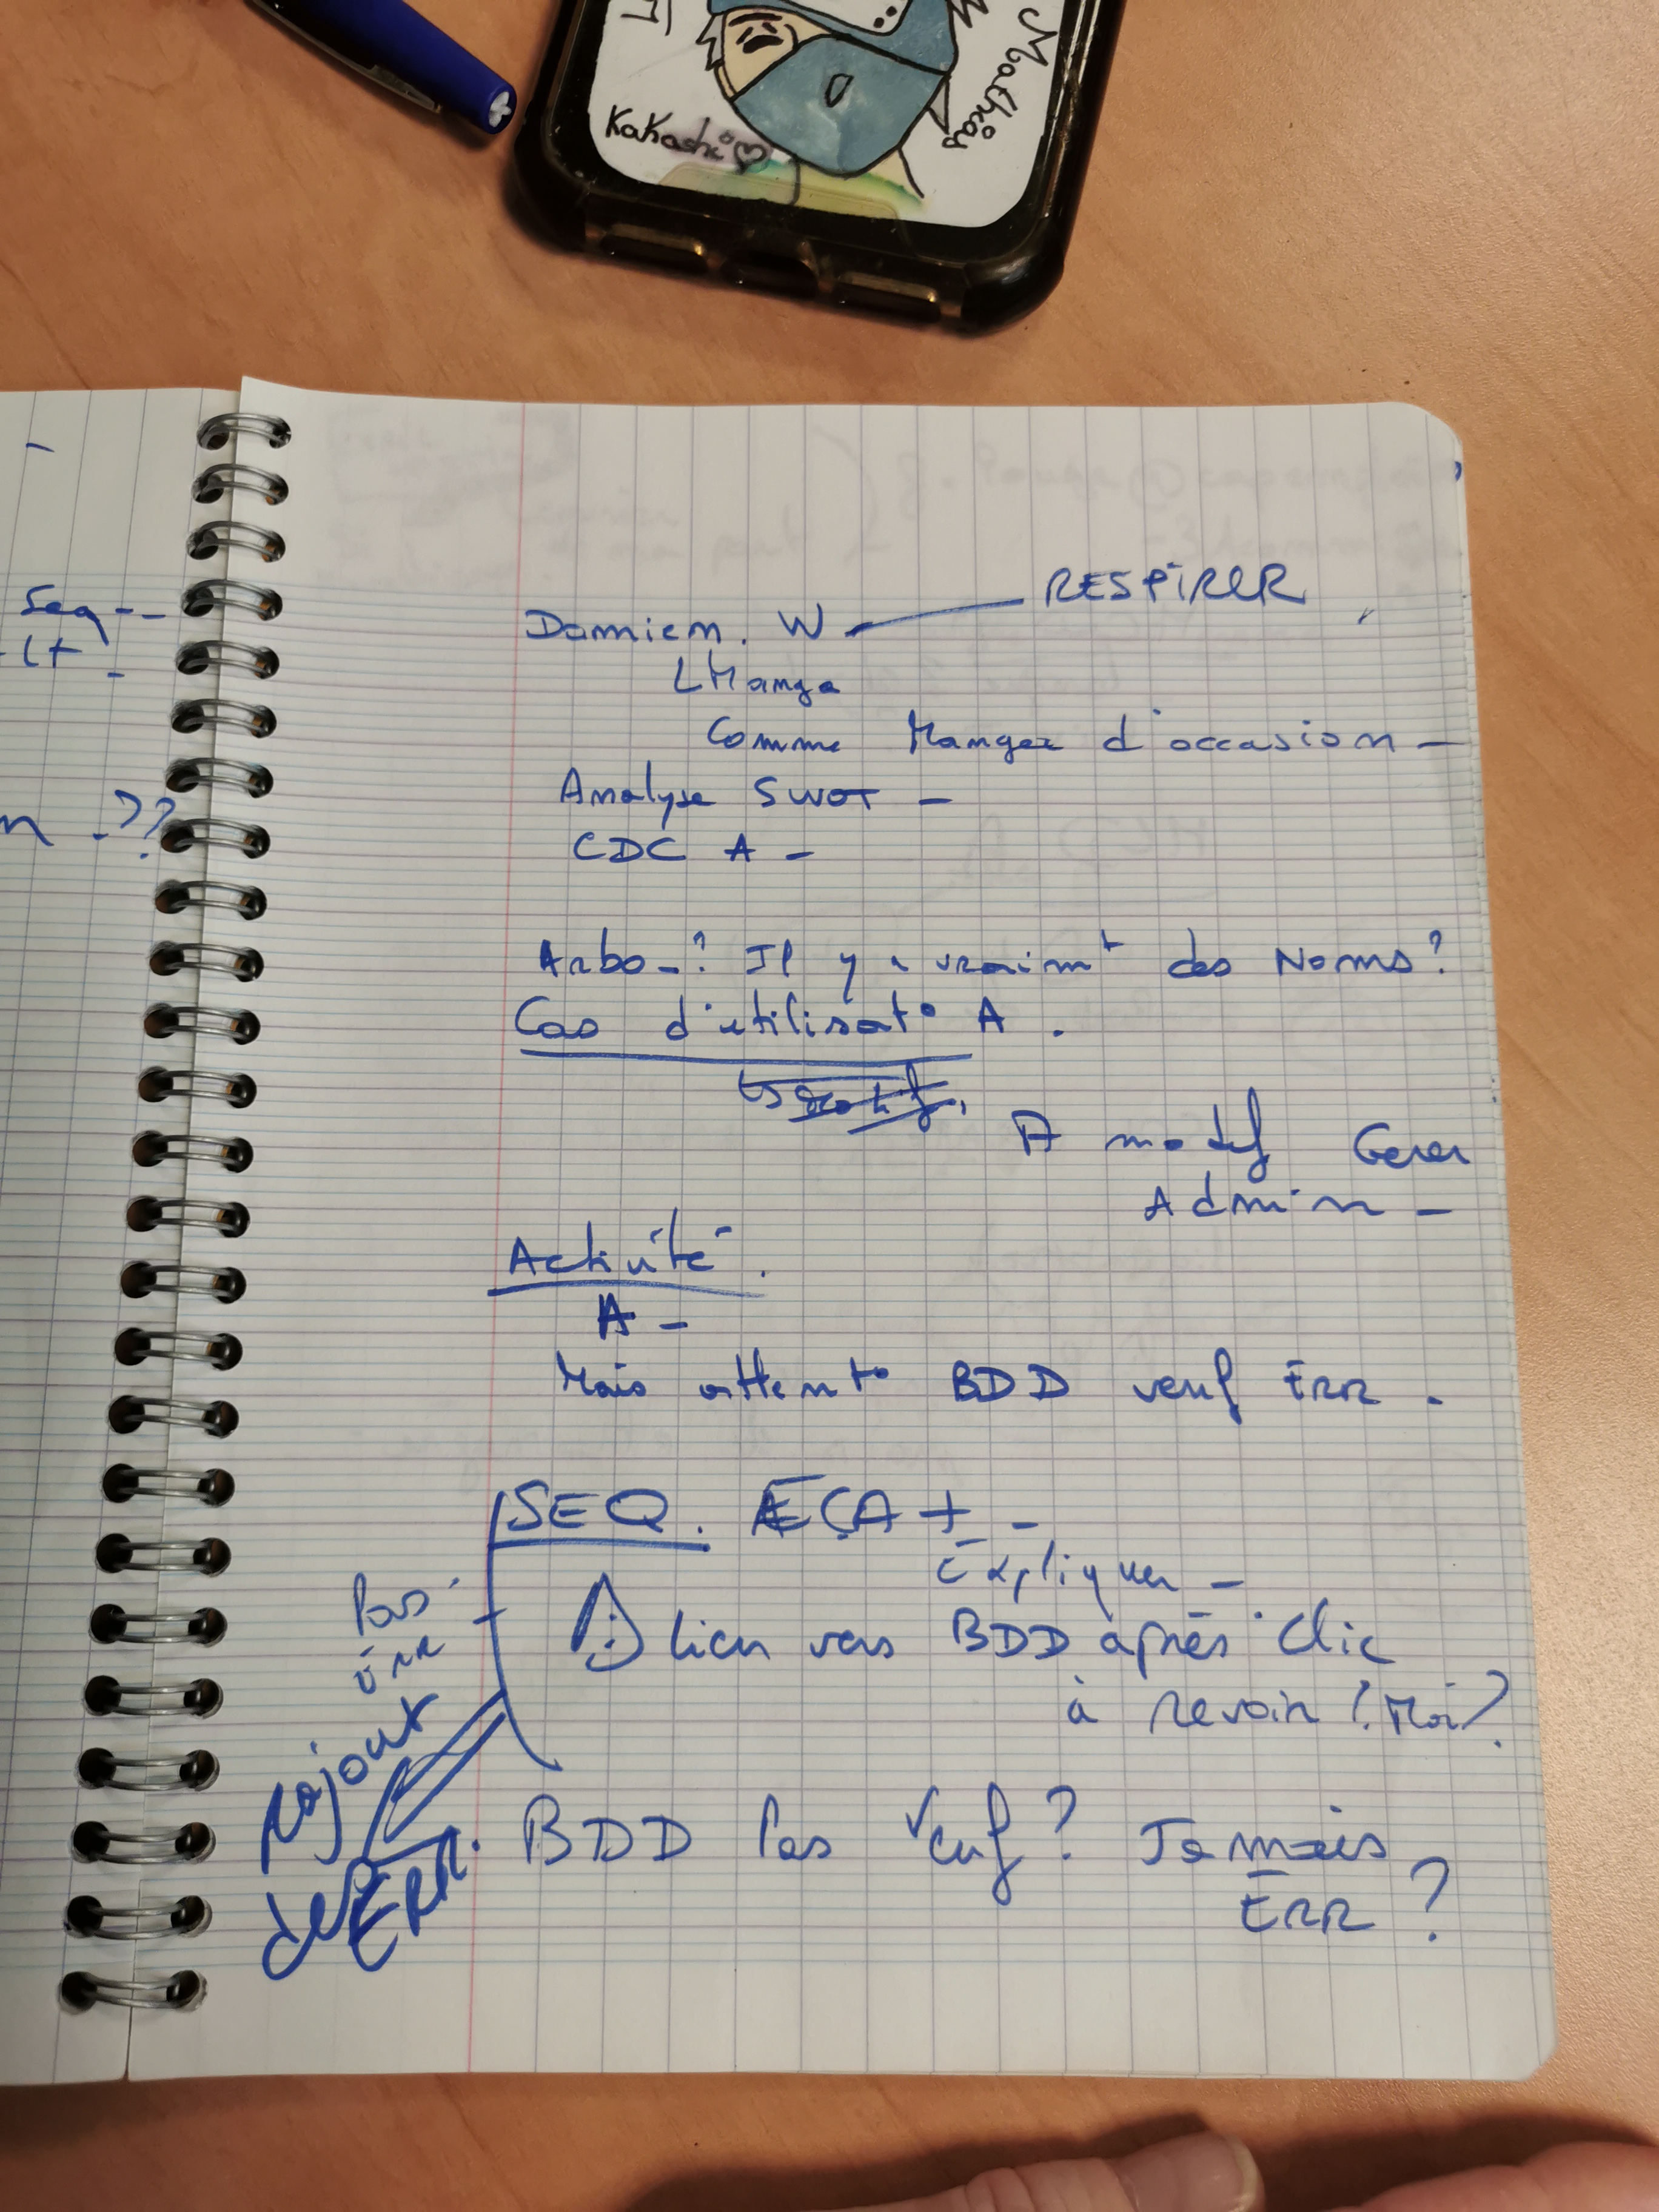 Mathias
Kakashi
Seq--
Lt -
n -??
Damien. W — RESPIRER
LManga
Comme Mangez d'occasion -
Analyse SWOT -
CDC A -
Arbo-? Il y a vraimt des Noms?
Cas d'utilisato A.
A modif Gerer
Admin -
Activité.
A -
Mais attento BDD verif Err.
SEQ. ECA + -
Expliquer -
Pas
Err
⚠ lien vers BDD après Clic
à revoir! Moi?
Rajout
des
ERR.
BDD Pas Verif? Jamais
Err?